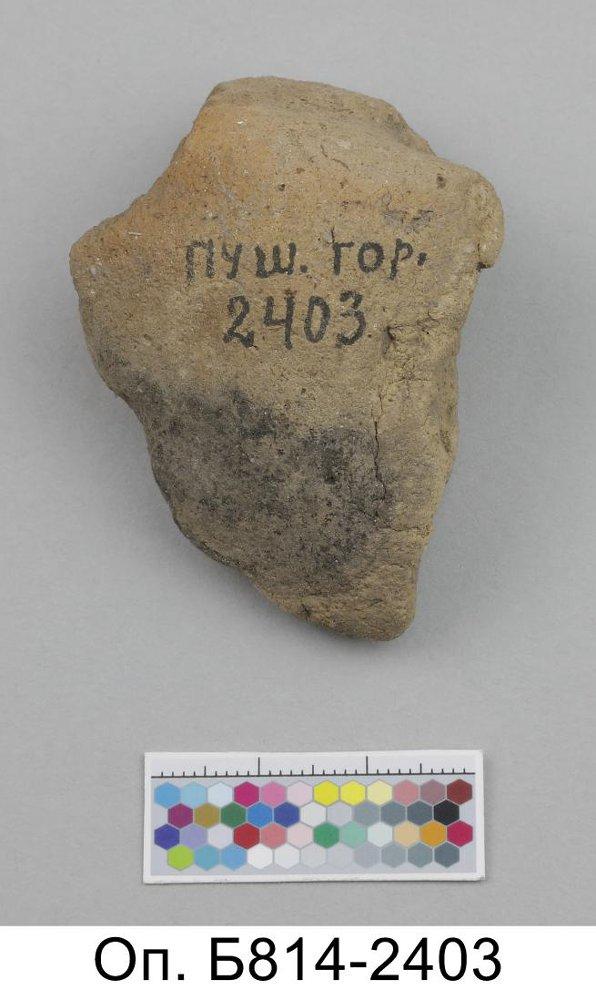 ПУШ. ГОР.
2403
Оп. Б814-2403